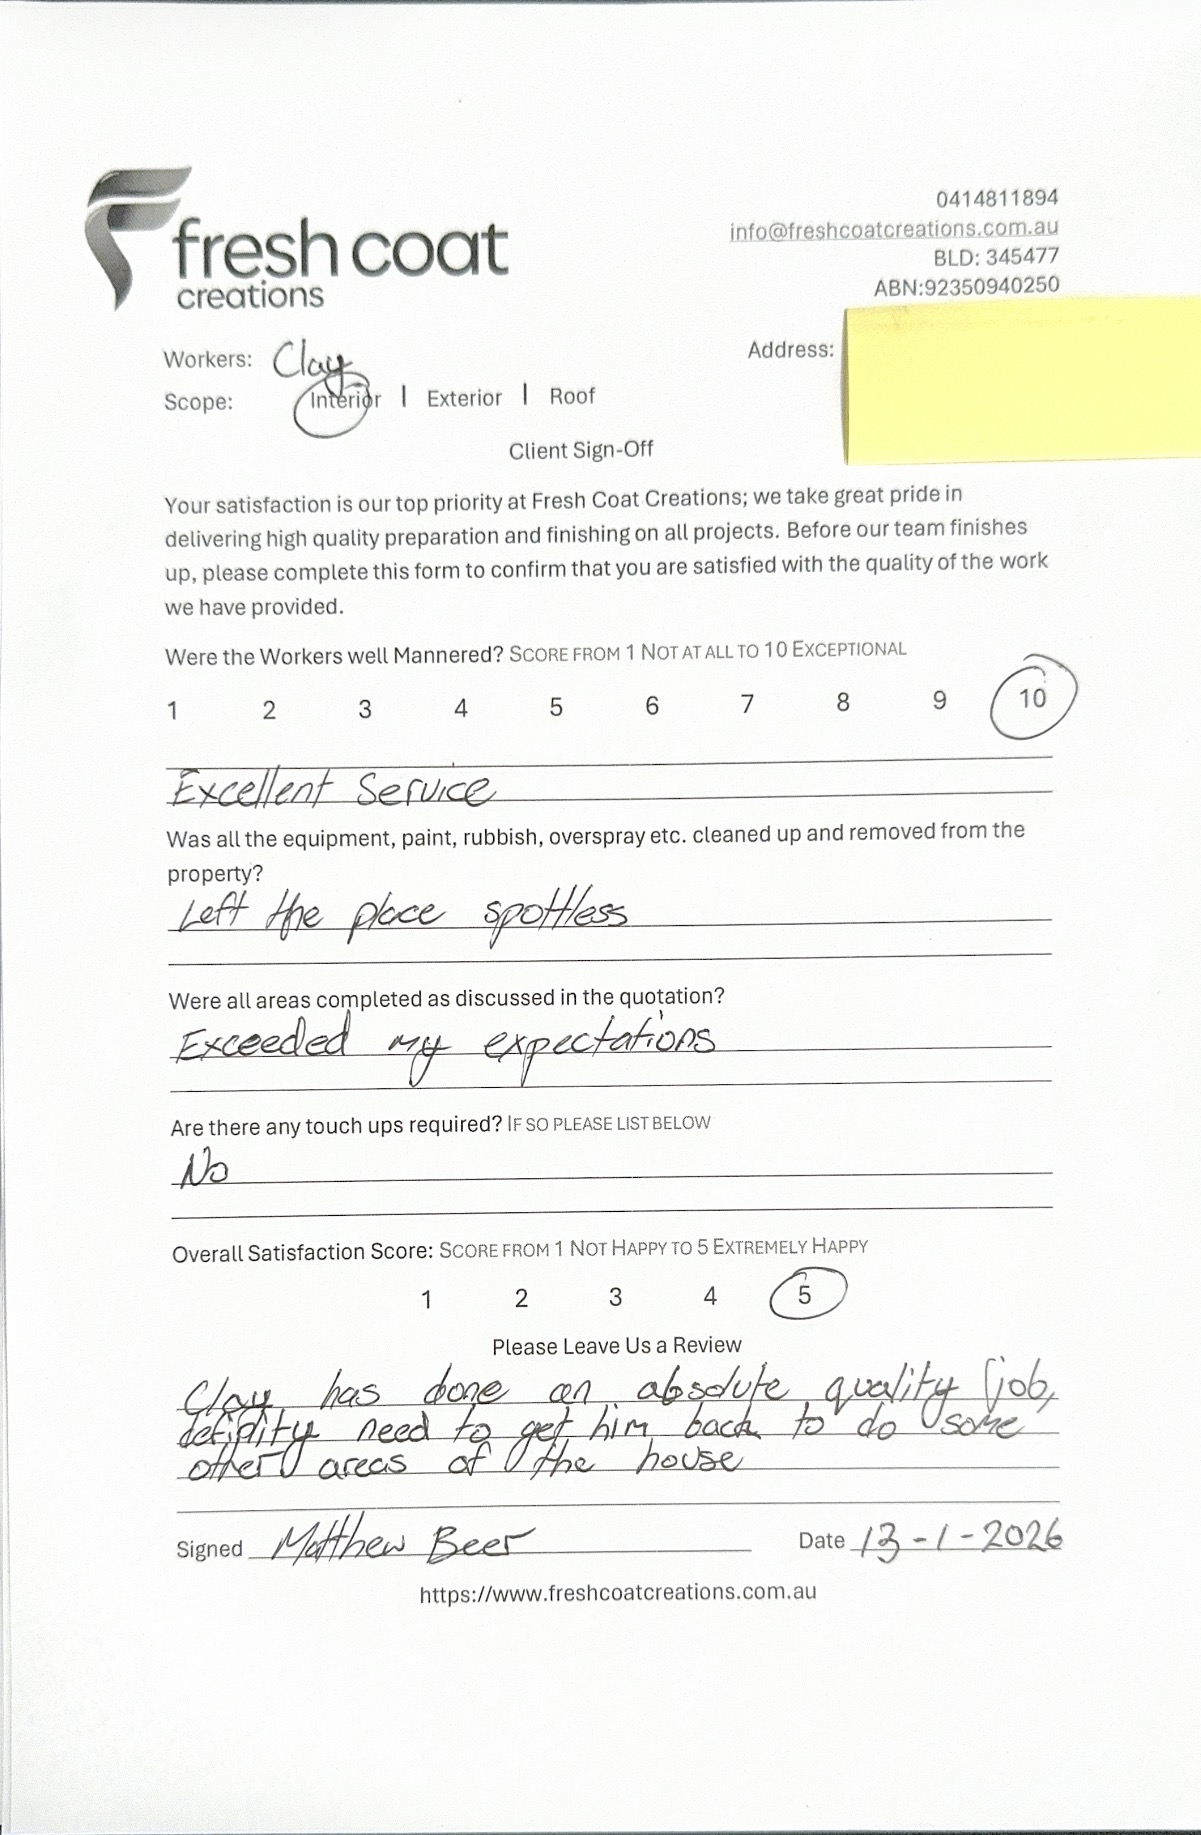 fresh coat
creations
0414811894
info@freshcoatcreations.com.au
BLD: 345477
ABN:92350940250
Workers: Clay
Address:
Scope: Interior | Exterior | Roof
Client Sign-Off
Your satisfaction is our top priority at Fresh Coat Creations; we take great pride in
delivering high quality preparation and finishing on all projects. Before our team finishes
up, please complete this form to confirm that you are satisfied with the quality of the work
we have provided.
Were the Workers well Mannered? SCORE FROM 1 NOT AT ALL TO 10 EXCEPTIONAL
1 2 3 4 5 6 7 8 9 10
Excellent Service
Was all the equipment, paint, rubbish, overspray etc. cleaned up and removed from the
property?
Left the place spottless
Were all areas completed as discussed in the quotation?
Exceeded my expectations
Are there any touch ups required? IF SO PLEASE LIST BELOW
No
Overall Satisfaction Score: SCORE FROM 1 NOT HAPPY TO 5 EXTREMELY HAPPY
1 2 3 4 5
Please Leave Us a Review
Clay has done an absolute quality job,
defintity need to get him back to do some
other areas of the house
Signed Matthew Beer Date 13-1-2026
https://www.freshcoatcreations.com.au